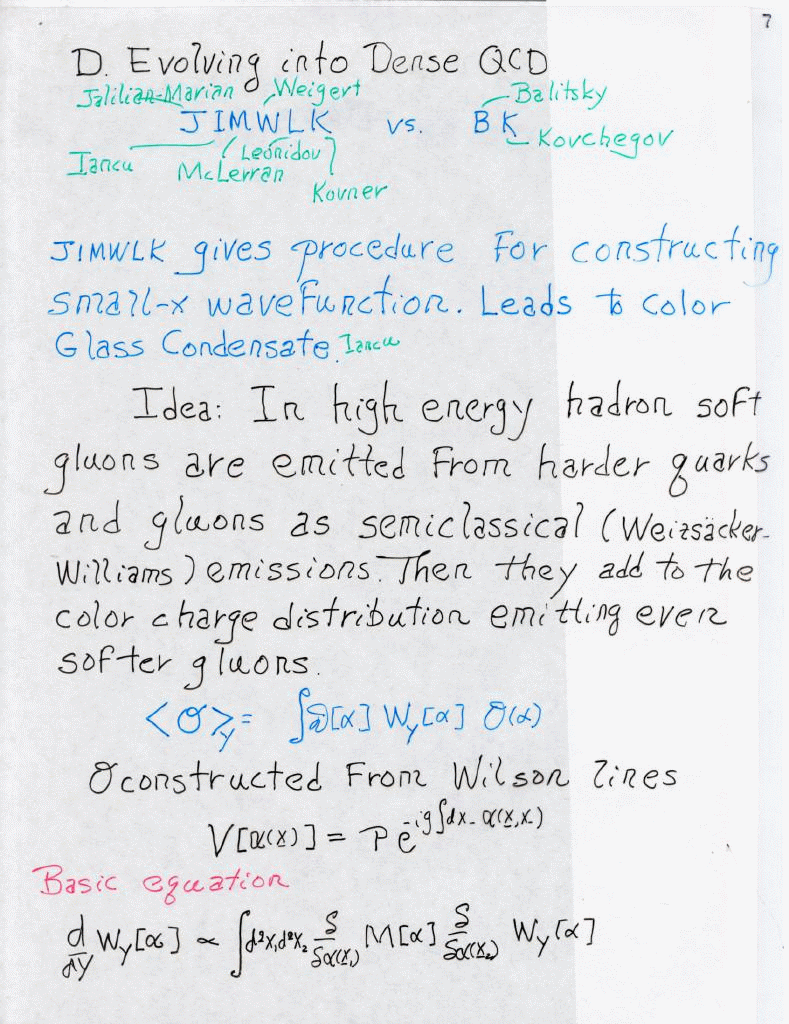 7
D. Evolving into Dense QCD
Jalilian-Marian Weigert Balitsky
JIMWLK vs. BK
Iancu McLerran Leonidov Kovner Kovchegov
JIMWLK gives procedure for constructing
small-x wavefunction. Leads to Color
Glass Condensate. Iancu
Idea: In high energy hadron soft
gluons are emitted from harder quarks
and gluons as semiclassical (Weizsäcker-
Williams) emissions. Then they add to the
color charge distribution emitting even
softer gluons.
<O>_Y = ∫D[α] W_Y[α] O(α)
O constructed From Wilson lines
V[α(x)] = P e^{-ig∫dx_- α(x,x_-)}
Basic equation
d/dY W_Y[α] ∝ ∫d²x₁d²x₂ δ/δα(x₁) M[α] δ/δα(x₂) W_Y[α]